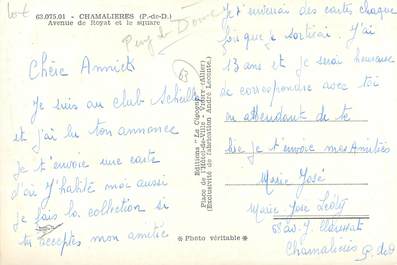 63.075.01 - CHAMALIERES (P.-de-D.)
Avenue de Royat et le square
Puy de Dôme
63
Chère Annick
Je suis au club
et j'ai lu ton annonce
Je t'envoie une carte
d'ou J'habite moi aussi
je fais la collection si
tu acceptes mon amitié
Editions "La Cigogne"
Place de l'Hôtel-de-Ville - VICHY (Allier)
(Exclusivité de fabrication André Leconte)
* Photo véritable *
Je t'enverrai des cartes chaque
fois que je sortirai. J'ai
13 ans et je serai heureuse
de correspondre avec toi
en attendent de te
lire je t'envoie mes Amitiés
Marie José
Marie José
Chamalières P. de D